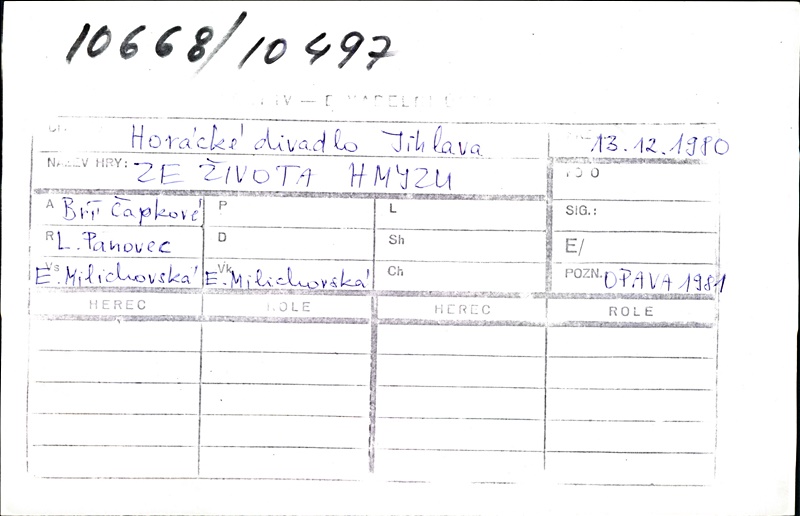 10668/10497
Horácké divadlo Jihlava 13.12.1980
NÁZEV HRY: ZE ŽIVOTA HMYZU
A Bří Čapkové P L SIG.:
R L. Panovec D Sh E/
Vs E. Milichovská Vk E. Milichovská Ch POZN. OPAVA 1981
HEREC ROLE HEREC ROLE